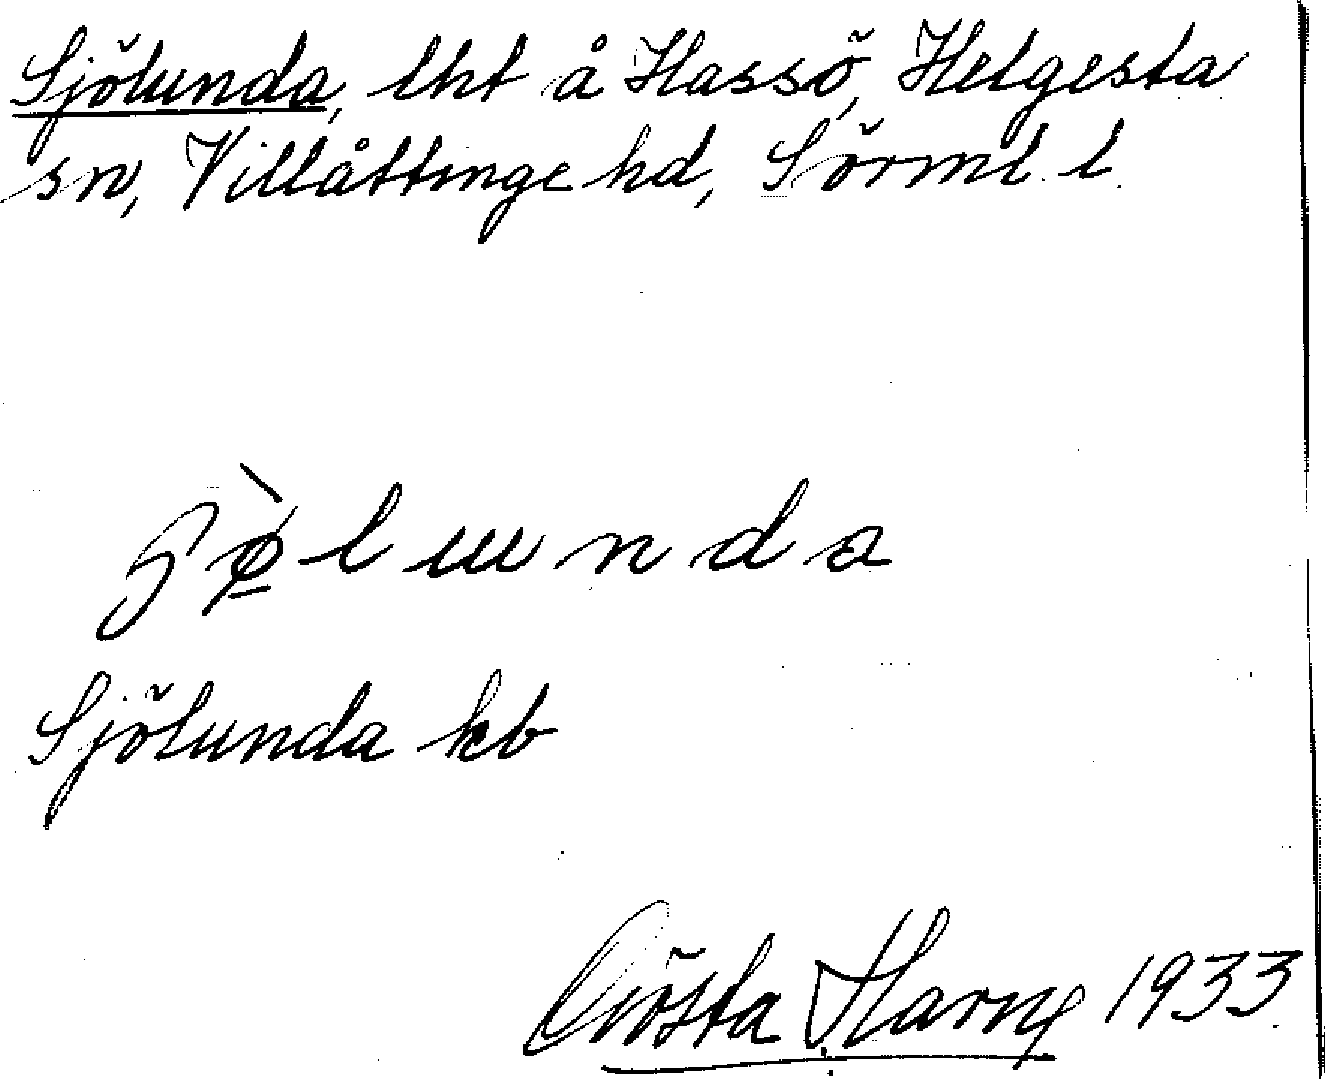 Sjölunda, lht å Hassö, Helgesta
sn, Villåttinge hd, Sörml. l.
Sjölunda kb
Gösta 1933